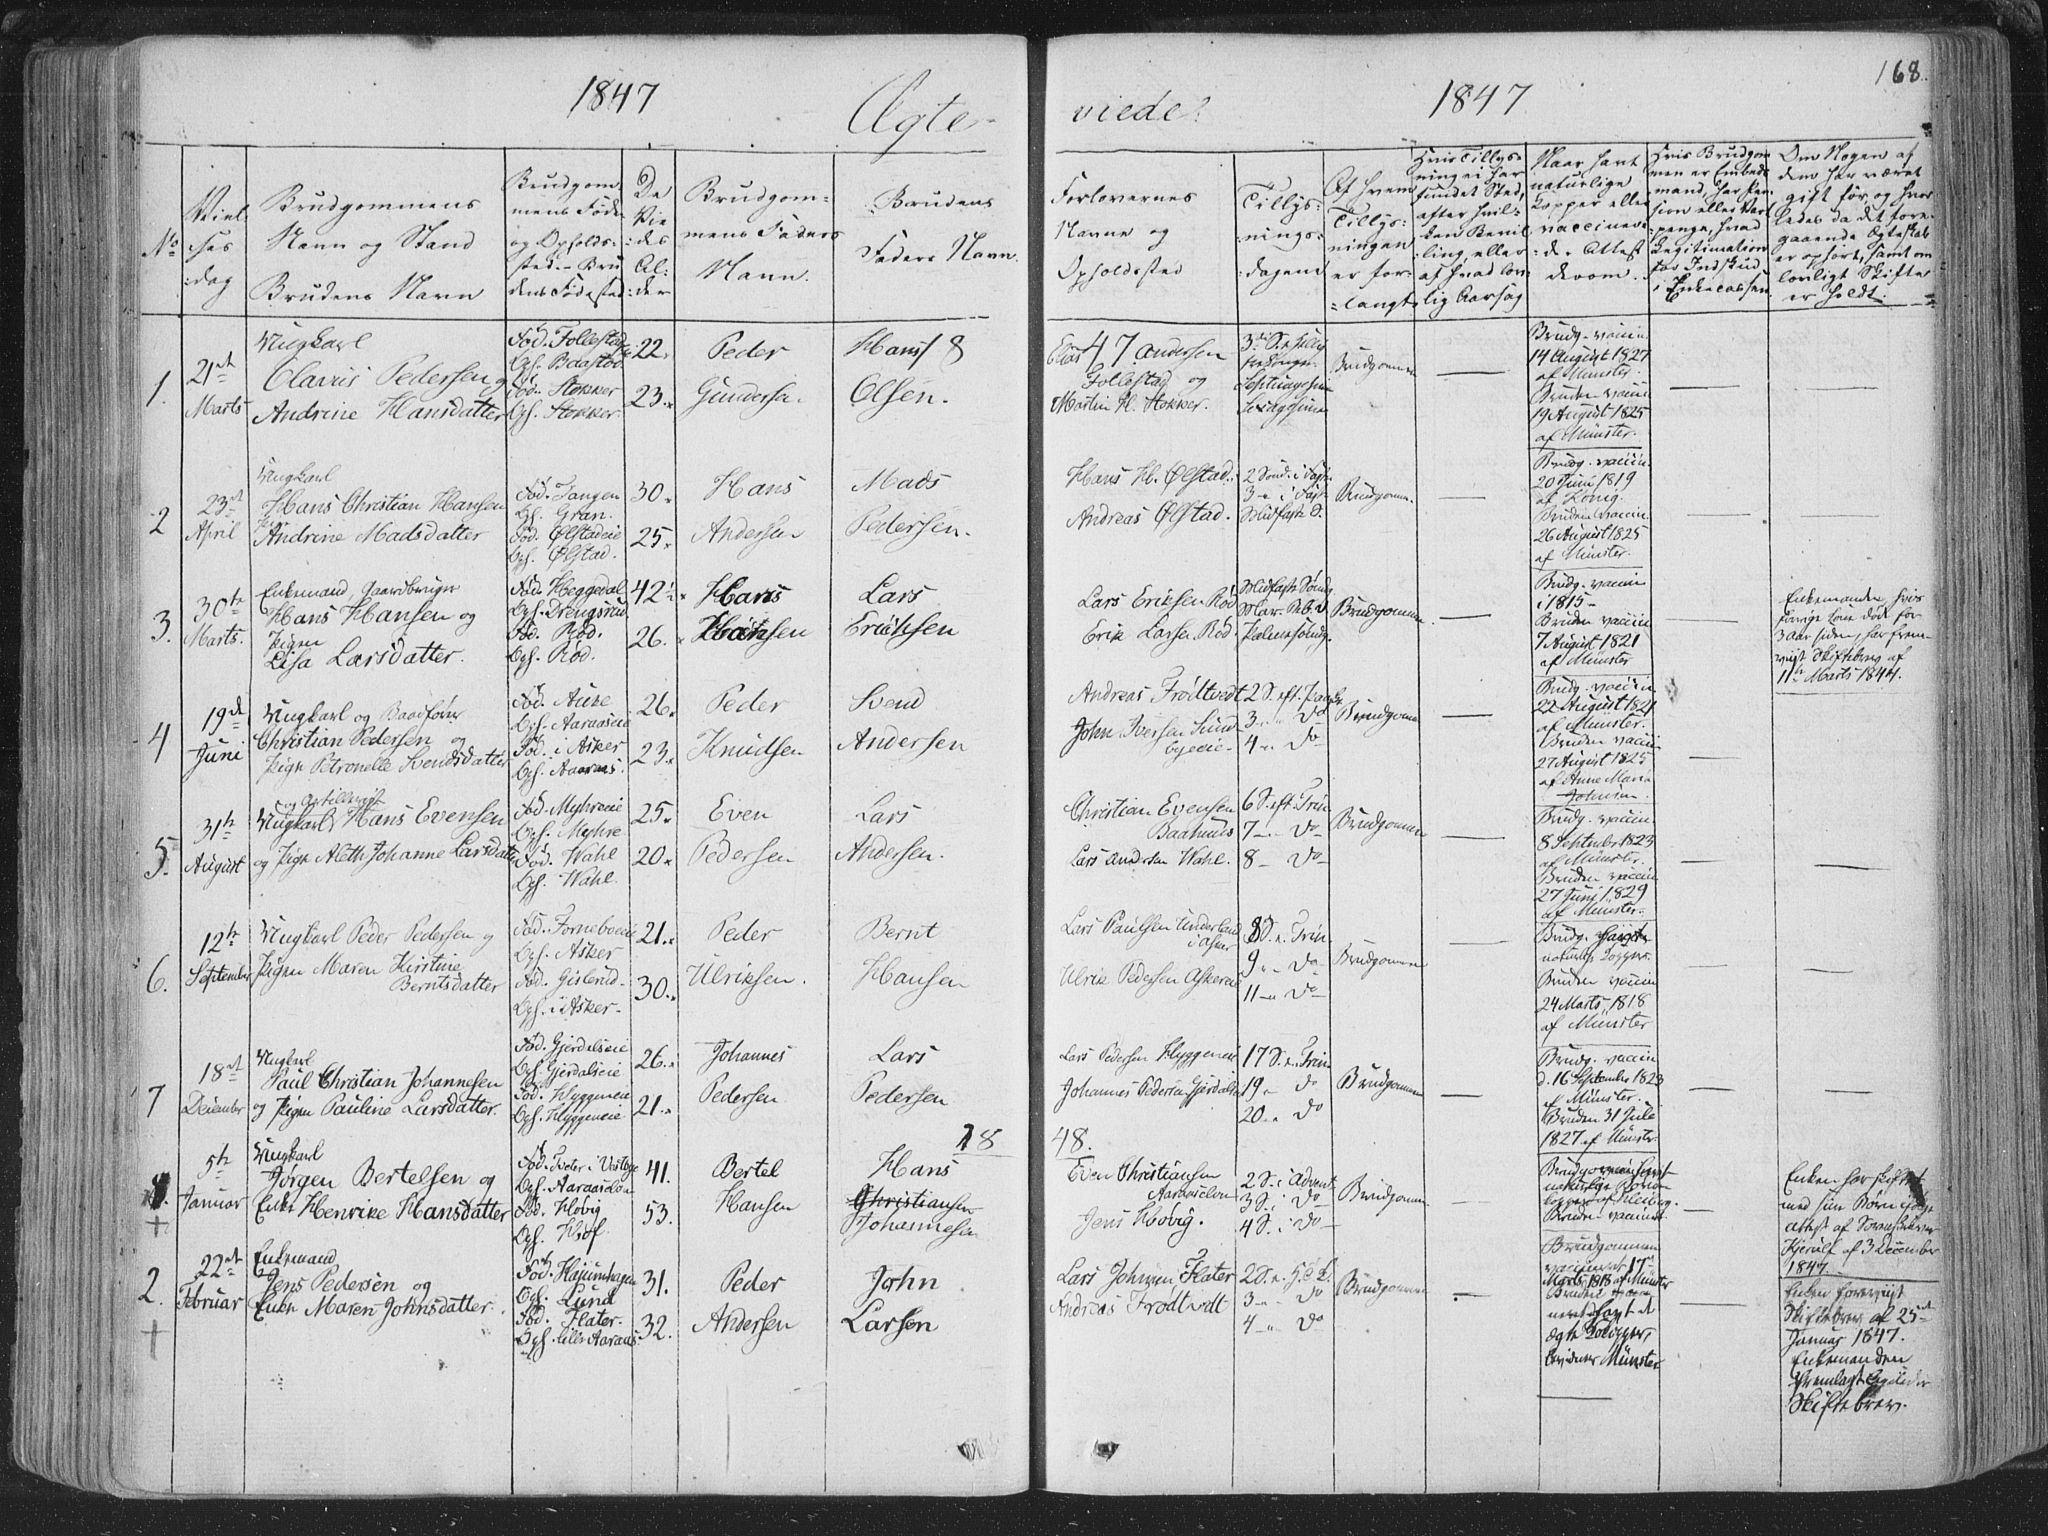 168.
1847
Ægte-
viede.
1847
No
Viel-
ses
dag
Brudgommens
Navn og Stand
Brudens Navn
Brudgom-
mens Føde
og Opholds-
sted - Bru
dens Fødested
De
Vie
des
Al-
der
Brudgom-
mens Faders
Navn.
Brudens
Faders Navn.
Forlovernes
Navne og
Opholdssted
Tillys-
nings-
dagene
Af hvem
Tillys-
ningen
er for-
langt
Hvis Tillys-
ning ei har
fundet Sted,
efter hvil-
den Bevil
ling, eller
af hvad lov
lig Aarsag
Naar havt
naturlige
Kopper eller
vaccinere-
de. Attest
derom.
Hvis Brudgom
men er Embeds
mand, har Pen
sion eller Vart
penge, hvad
Legitimation
for Indskud
i Enkecassen.
Om Nogen af
dem har været
gift før, og hvor
ledes da det fore-
gaaende Ægteskab
er ophørt, samt om
lovligt Skifte
er holdt.
1.
21de
Marts
Ungkarl
Olavus Pedersen og
Andrine Hansdatter
Fød. Follestad
Oph. Baastad
Fød. Stokker
Oph. Stokker.
22.
23.
Peder
Gundersen
Hans
Olsen.
18
47
Elias Andersen
Follestad og
Martin H. Stokker.
3de S. e. Hell.
tr. Konger
Septuagesima
Sexagesima
Brudgommen
Brudg. vaccin.
14 August 1827
af Münster.
Bruden vaccin
19 August 1825
af Münster.
2
23de
April
Ungkarl
Hans Christian Hansen
Andrine Madsdatter
Fød. Tangen
Oph. Gran.
Fød. Ølstadeie
Oph. Ølstad.
30.
25.
Hans
Andersen
Mads
Pedersen.
Hans H. Ølstad.
Andreas Ølstad.
2 Sond. i Faste
3 - i Fast
Midfaste S.
Brudgomm.
Brudg. vaccin.
20 Juni 1819
af König.
Bruden vaccin.
26 August 1825
af Münster.
3.
30te
Marts.
Enkemand, Gaardbruger
Hans Hansen og
Pigen
Lisa Larsdatter.
Fød. Heggedal
Oph. Drengsrud
Fød. Rød.
Oph. Rød.
42 1/2
26.
Hans
Hansen
Lars
Eriksen
Lars Eriksen Rød
Erik Larsen Rød.
Midfaste Sønd.
Mar. Beb. d.
Palmesøndg.
Brudgomm.
Brudg. vaccin
i 1815 -
Bruden vaccin
7 August 1821
af Münster
Enkemanden, hvis
forrige Kone døde for
3 Aar siden, har frem-
viist Skiftebrev af
11te Marts 1844.
4
19de
Juni
Ungkarl og Baadfører
Christian Pedersen og
Pige Petronelle Svendsdatter
Fød. Auke
Oph. Aaraaseie
Fød. i Asker
Oph. Aaraas.
26.
23.
Peder
Knudsen
Svend
Andersen
Andreas Frödtvedt
John Iversen Lund
Eyeeie-
2 S. eft. Paaske
3 - do
4 - do
Brudgomm
Brudg. vaccin
22 August 1821
af Münster.
Bruden vaccin
27 August 1825
af Anne Maria
Johnsen.
5.
31te
August
og Artillerist
Ungkarl Hans Evensen
og Pige Aleth Johanne Larsdatter
Fød. Myhreeie
Oph. Myhre
Fød. Wahl
Oph. Wahl.
25.
20.
Even
Pedersen
Lars
Andersen.
Christian Evensen
Baahuus
Lars Andersen Wahl.
6 S. eft. Trin.
7 - do
8 - do
Brudgommen
Brudg. vaccin.
8 September 1823
af Münster.
Bruden vaccin
27 Juni 1829
af Münster.
6.
12te
September
Ungkarl Peder Pedersen og
Pigen Maren Kirstine
Berntsdatter
Fød. Forneboeie
Oph. Asker
Fød. Gislerud.
Oph. i Asker.
21.
30.
Peder
Ulriksen.
Bernt
Hansen
Lars Paulsen Underland
i Asker
Ulrik Pedersen Askereie
8 S. e. Trin.
9 - do
11 - do
Brudgommen
Brudg. havt
naturlige Kopper.
Bruden vaccin
24 Marts 1818
af Münster
7
18de
December
Ungkarl
Paul Christian Johannesen
og Pigen Pauline Larsdatter.
Fød. Gjerdalseie
Oph. Gjerdalseie
Fød. Hyggeneie
Oph. Hyggeneie
26.
21.
Johannes
Pedersen
Lars
Pedersen
Lars Pedersen Hyggeneie
Johannes Pedersen Gjerdals
17 S. e. Trin
19 - do
20 - do
Brudgommen
Brudg. vaccin
d. 16 September 1823
af Münster.
Bruden 31 Juli
1827 af Münster.
18
48.
5te
Januar
Ungkarl
Jørgen Bertelsen og
Enke Henrike Hansdatter
Oph. Aaraasløn
Fød. Høbig
Oph. Hof.
41.
53.
Bertel
Hansen
Hans
Christiansen
Johannesen
Even Christiansen
Aaraasløn
Jens Høvig.
2 S. i Advent
3 S. i do
4 S. i do
Brudgomm
Bruden vaccinet
Enken har skiftet
med sine Børn
Attest af Sorenskriver
Hjerulf af 3 December
1847.
2.
22de
Februar
Enkemand
Jens Pedersen og
Enke Maren Johnsdatter.
Oph. Lund
Fød. Flater.
Oph. lille Aaraas
31.
32.
Peder
Andersen
John
Larsen
Lars Johnsen Flater
Andreas Frödtvedt
3 - do
4 - do
Brudgommen
Brudgommen
vaccineret 17
Marts 1818 af Münster
Bruden vacci-
neret havt de
ægte Kopper,
bevidner Münster
Enken foreviist
Skiftebrev af 25de
Januar 1847.
Enkemanden
fremlagt ligeledes
Skiftebrev.